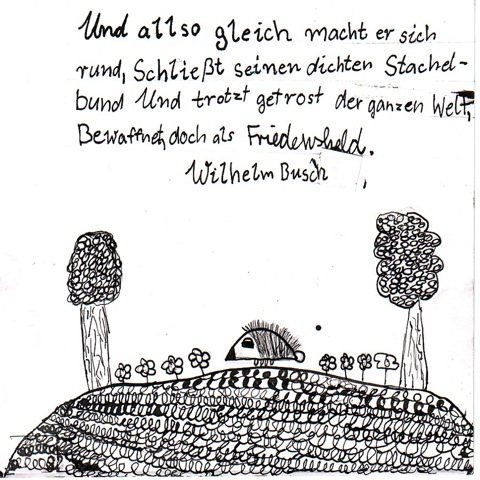 Und allso gleich macht er sich
rund, Schließt seinen dichten Stachel-
bund Und trotzt getrost der ganzen Welt,
Bewaffnet, doch als Friedensheld.
Wilhelm Busch